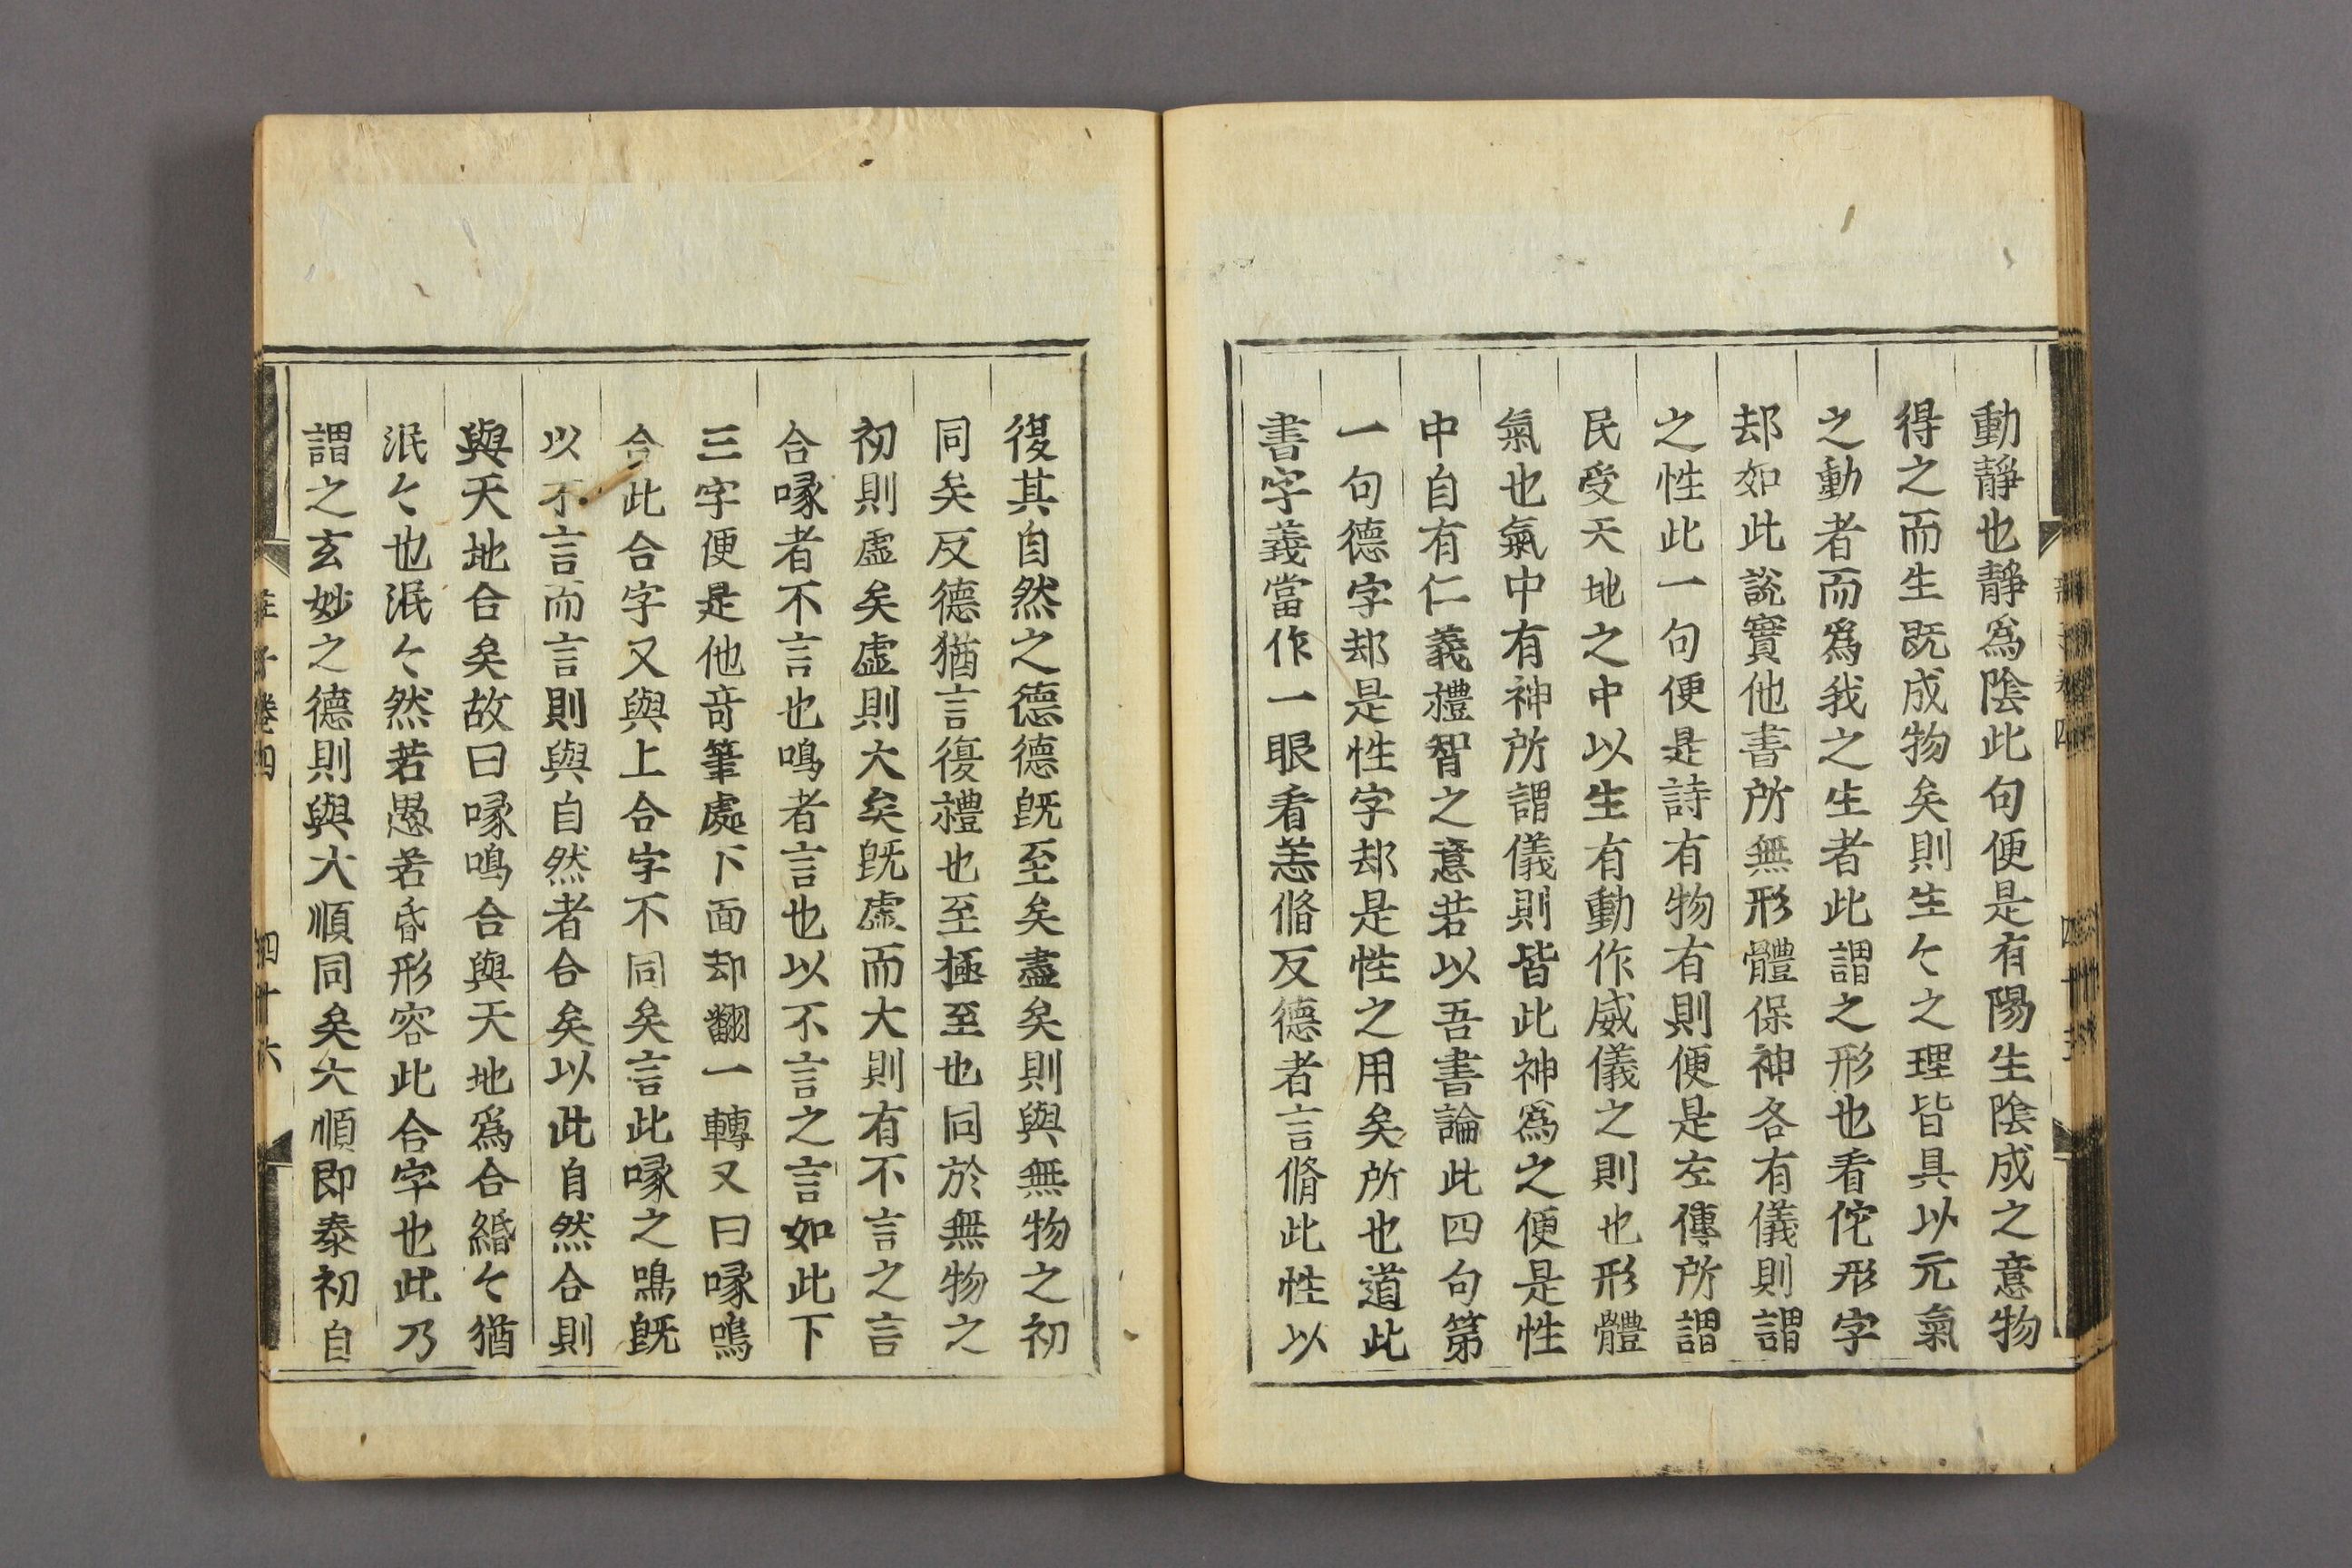 動靜也靜爲陰此句便是有陽生陰成之意物
得之而生旣成物矣則生〻之理皆具以元氣
之動者而爲我之生者此謂之形也看佗形字
却如此說實他書所無形體保神各有儀則謂
之性此一句便是詩有物有則便是左傳所謂
民受天地之中以生有動作威儀之則也形體
氣也氣中有神所謂儀則皆此神爲之便是性
中自有仁義禮智之意若以吾書論此四句第
一句德字却是性字却是性之用矣所也道此
書字義當作一眼看恙脩反德者言脩此性以
復其自然之德德旣至矣盡矣則與無物之初
同矣反德猶言復禮也至極至也同於無物之
初則虛矣虛則大矣旣虛而大則有不言之言
合喙者不言也鳴者言也以不言之言如此下
三字便是他竒筆處下面却翻一轉又曰喙鳴
合此合字又與上合字不同矣言此喙之鳴旣
以不言而言則與自然者合矣以此自然合則
與天地合矣故曰喙鳴合與天地爲合緡〻猶
泯〻也泯〻然若愚若昏形容此合字也此乃
謂之玄妙之德則與大順同矣大順即泰初自
莊子卷四
四十六